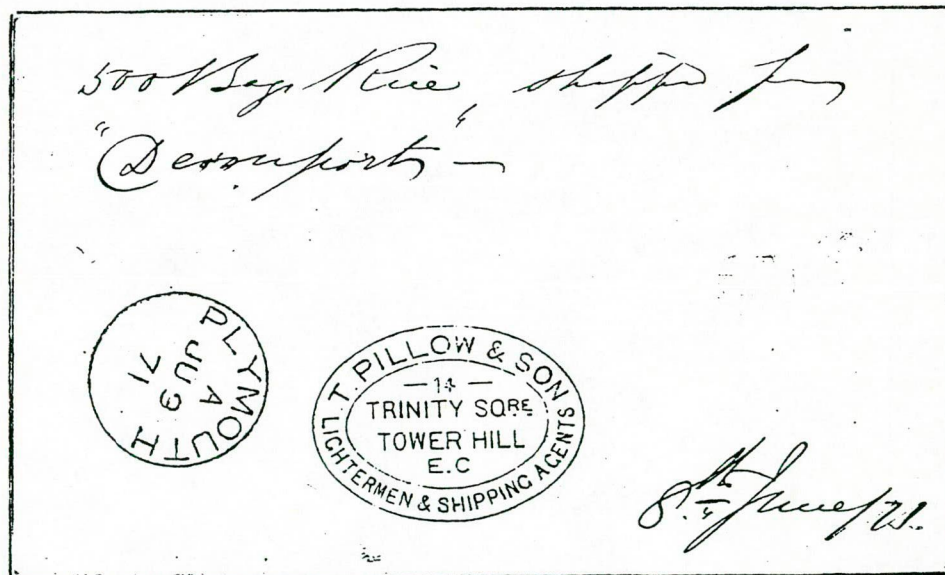 500 Bags Rice shipped per
"Devonport" —
PLYMOUTH
A
JU 9
71
T. PILLOW & SON
— 14 —
TRINITY SQRE
TOWER HILL
E.C
LIGHTERMEN & SHIPPING AGENTS
8th June/71.